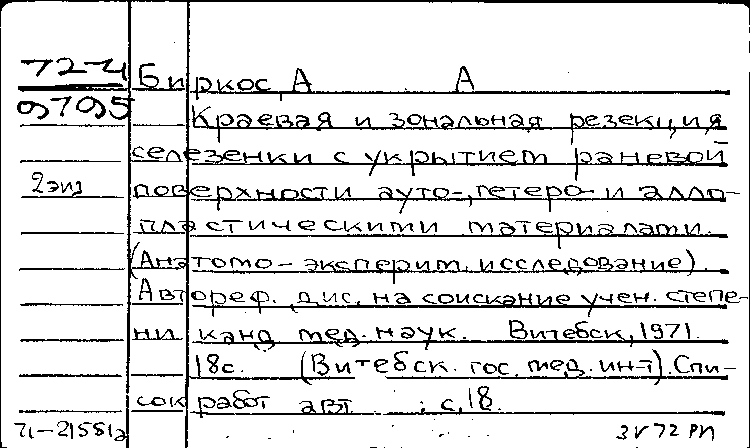 72-4 Биркос, А А
9795 Краевая и зональная резекция
селезенки с укрытием раневой
2 экз поверхности ауто-, гетеро- и алло-
пластическими материалами.
(Анатомо-эксперим. исследование).
Автореф. дис. на соискание учен. степе-
ни канд мед. наук. Витебск, 1971.
18с. (Витебск. гос. мед. ин-т). Спи-
сок работ авт.: с. 18.
71-21581а 3 V 72 РП